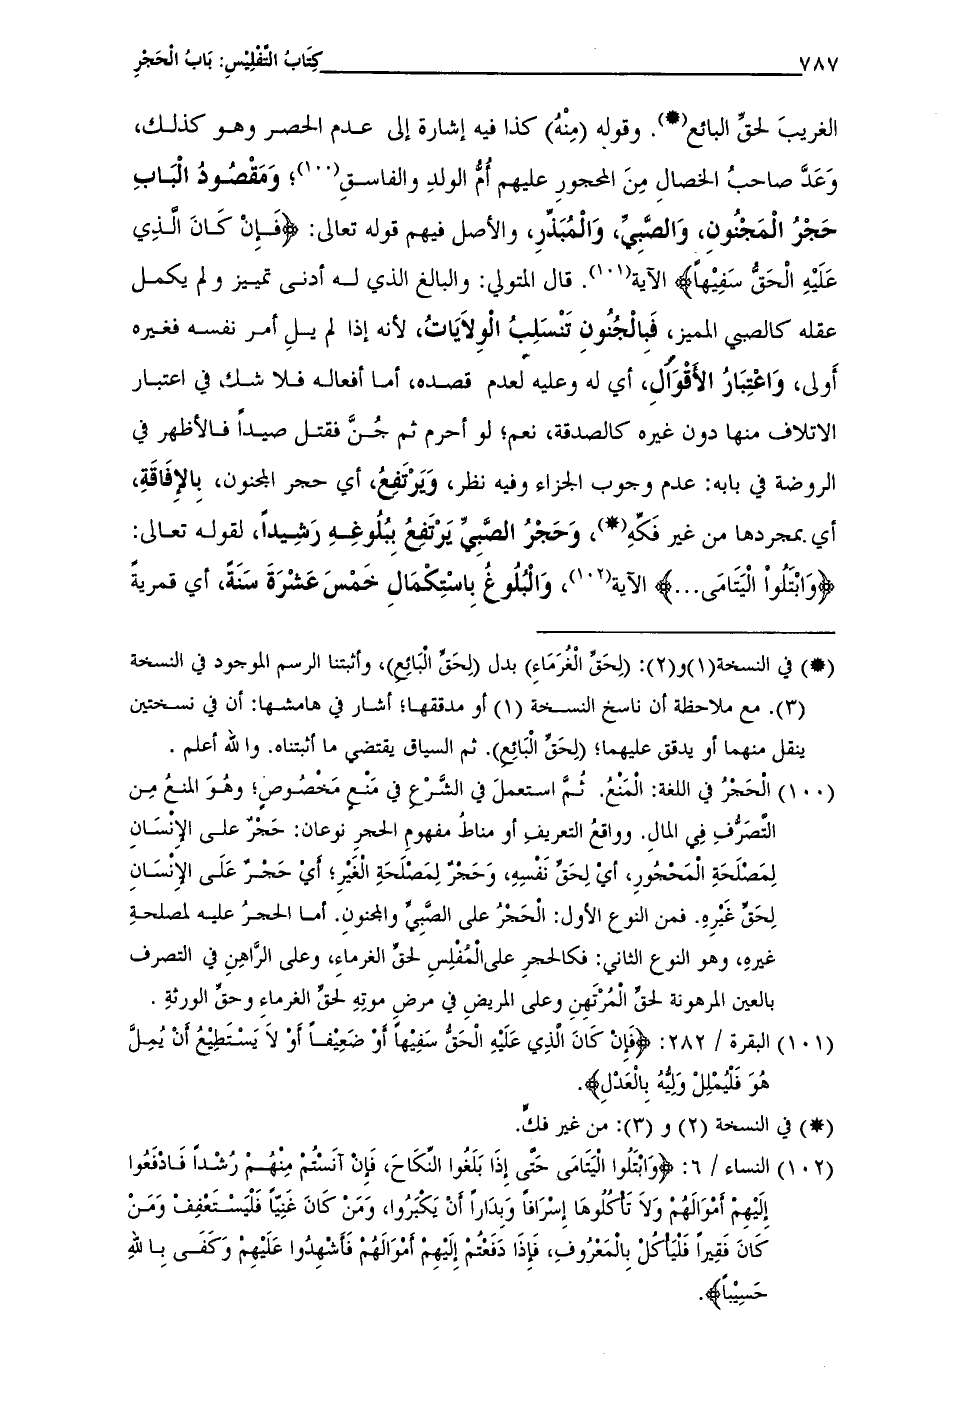 ٧٨٧ كِتَابُ التَّفْلِيْسِ: بَابُ الْحَجْرِ
الغريبَ لحقِّ البائع(*). وقوله (مِنْهُ) كذا فيه إشارة إلى عدم الحصر وهو كذلك،
وَعَدَّ صاحبُ الخصال مِنَ المحجور عليهم أُمُّ الولدِ والفاسقِ(١٠٠)؛ وَمَقْصُودُ الْبَابِ
حَجْرُ الْمَجْنُونِ، وَالصَّبِيِّ، وَالْمُبَذِّرِ، والأصل فيهم قوله تعالى: ﴿فَإِنْ كَانَ الَّذِي
عَلَيْهِ الْحَقُّ سَفِيْهاً﴾ الآية(١٠١). قال المتولي: والبالغ الذي له أدنى تمييز ولم يكمل
عقله كالصبي المميز، فَبِالْجُنُونِ تَنْسَلِبُ الْولاَيَاتُ، لأنه إذا لم يلِ أمر نفسه فغيره
أَولى، وَاعْتِبَارُ الأَقْوَالِ، أي له وعليه لعدم قصده، أما أفعاله فلا شك في اعتبار
الاتلاف منها دون غيره كالصدقة، نعم؛ لو أحرم ثم جُنَّ فقتل صيداً فالأظهر في
الروضة في بابه: عدم وجوب الجزاء وفيه نظر، وَيَرْتَفِعُ، أي حجر المجنون، بِالإِفَاقَةِ،
أي بمجردها من غير فَكِّهِ(*)، وَحَجْرُ الصَّبِيِّ يَرْتَفِعُ بِبُلُوغِهِ رَشِيداً، لقوله تعالى:
﴿وَابْتَلُواْ الْيَتَامَى...﴾ الآية(١٠٢)، وَالْبُلُوغُ بِاسْتِكْمَالِ خَمْسَ عَشْرَةَ سَنَةً، أي قمريةً
(*) في النسخة(١)و(٢): (لِحَقِّ الْغُرَمَاءِ) بدل (لِحَقِّ الْبَائِعِ)، وأثبتنا الرسم الموجود في النسخة
(٣). مع ملاحظة أن ناسخ النسخة (١) أو مدققها؛ أشار في هامشها: أن في نسختين
ينقل منهما أو يدقق عليهما؛ (لِحَقِّ الْبَائِعِ). ثم السياق يقتضي ما أثبتناه. والله أعلم .
(١٠٠) الْحَجْرُ في اللغة: الْمَنْعُ. ثُمَّ استعملَ في الشَّرْعِ في مَنْعٍ مَخْصُوصٍ؛ وهُوَ المنعُ مِن
التَّصَرُّفِ فِي المال. وواقعُ التعريفِ أو مناطُ مفهومِ الحجرِ نوعان: حَجْرٌ على الإِنْسَان
لِمَصْلَحَةِ الْمَحْجُورِ، أيْ لِحَقِّ نَفْسِهِ، وَحَجْرٌ لِمَصْلَحَةِ الْغَيْرِ؛ أيْ حَجْرٌ عَلَى الإِنْسَانِ
لِحَقِّ غَيْرِهِ. فمن النوع الأول: الْحَجْرُ على الصَّبِيِّ والمجنون. أما الحجرُ عليه لمصلحةِ
غيرِهِ، وهو النوع الثاني: فكالحجرِ على الْمُفْلِسِ لحقِّ الغرماءِ، وعلى الرَّاهِنِ في التصرف
بالعين المرهونة لحقِّ الْمُرْتَهِنِ وعلى المريضِ في مرضِ موتِهِ لحقِّ الغرماءِ وحقِّ الورثةِ .
(١٠١) البقرة / ٢٨٢: ﴿فَإِنْ كَانَ الَّذِي عَلَيْهِ الْحَقُّ سَفِيْهاً أَوْ ضَعِيْفاً أَوْ لاَ يَسْتَطِيْعُ أَنْ يُمِلَّ
هُوَ فَلْيُمْلِلْ وَلِيُّهُ بِالْعَدْلِ﴾.
(*) في النسخة (٢) و (٣): من غير فكٍّ.
(١٠٢) النساء / ٦: ﴿وَابْتَلُوا الْيَتَامَى حَتَّى إِذَا بَلَغُوا النِّكَاحَ، فَإِنْ آنَسْتُمْ مِنْهُمْ رُشْداً فَادْفَعُوا
إِلَيْهِمْ أَمْوَالَهُمْ وَلاَ تَأْكُلُوهَا إِسْرَافاً وَبِدَاراً أَنْ يَكْبَرُوا، وَمَنْ كَانَ غَنِيّاً فَلْيَسْتَعْفِفْ وَمَنْ
كَانَ فَقِيراً فَلْيَأْكُلْ بِالْمَعْرُوفِ، فَإِذَا دَفَعْتُمْ إِلَيْهِمْ أَمْوَالَهُمْ فَأَشْهِدُوا عَلَيْهِمْ وَكَفَى بِاللهِ
حَسِيْباً﴾.